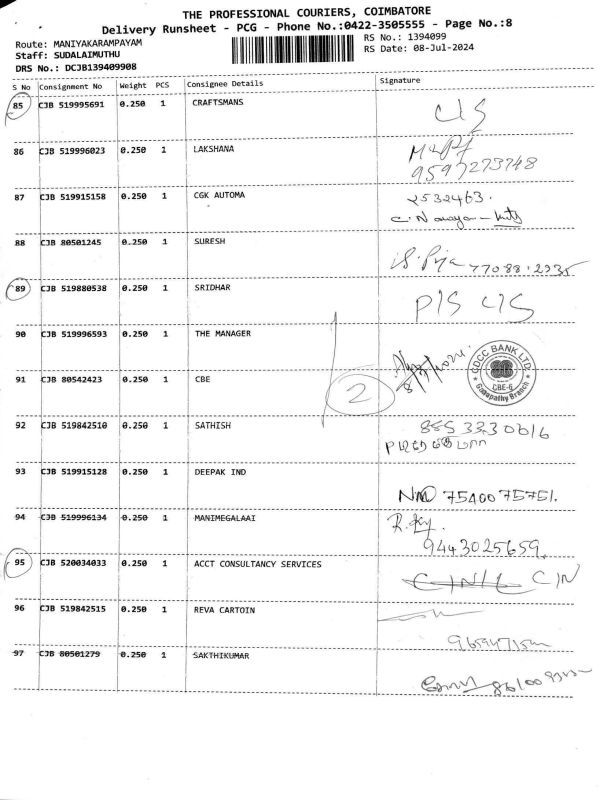 THE PROFESSIONAL COURIERS, COIMBATORE
Delivery Runsheet - PCG - Phone No.:0422-3505555 - Page No.:8
Route: MANIYAKARAMPAYAM
Staff: SUDALAIMUTHU
DRS No.: DCJB139409908
RS No.: 1394099
RS Date: 08-Jul-2024
S No Consignment No Weight PCS Consignee Details Signature
85 CJB 519995691 0.250 1 CRAFTSMANS
86 CJB 519996023 0.250 1 LAKSHANA
9597273748
87 CJB 519915158 0.250 1 CGK AUTOMA 2532463.
88 CJB 80501245 0.250 1 SURESH
77088
89 CJB 519880538 0.250 1 SRIDHAR
90 CJB 519996593 0.250 1 THE MANAGER
CDCC BANK LTD.
CBE-6
Ganapathy Branch
91 CJB 80542423 0.250 1 CBE 2
92 CJB 519842510 0.250 1 SATHISH
93 CJB 519915128 0.250 1 DEEPAK IND
7540075751.
94 CJB 519996134 0.250 1 MANIMEGALAAI
9443025659.
95 CJB 520034033 0.250 1 ACCT CONSULTANCY SERVICES
96 CJB 519842515 0.250 1 REVA CARTOIN
97 CJB 80501279 0.250 1 SAKTHIKUMAR